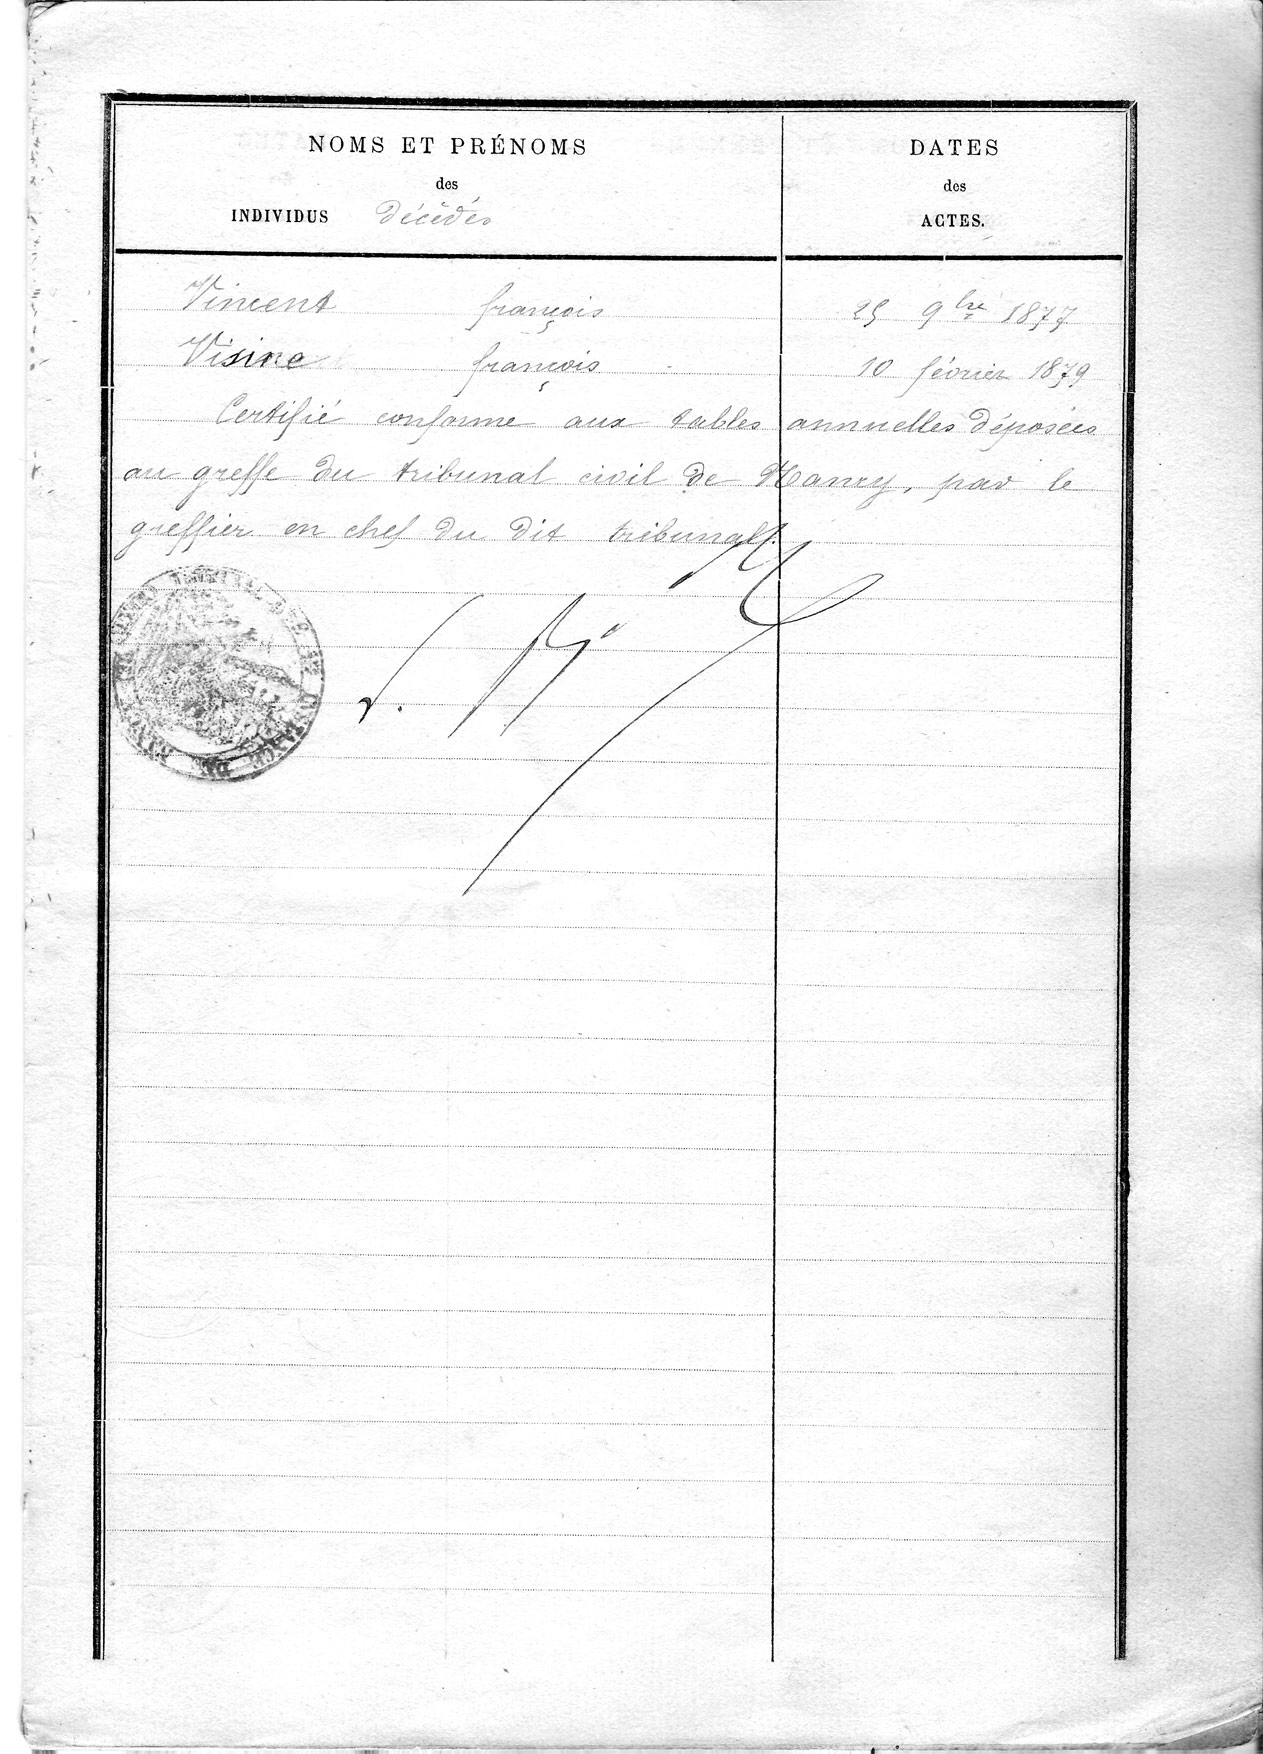 NOMS ET PRÉNOMS
des
INDIVIDUS décédés
DATES
des
ACTES.
Vincent françois 25 9bre 1877
Visine françois 10 février 1879
Certifié conforme aux tables annuelles déposées
au greffe du tribunal civil de Nancy, par le
greffier en chef du dit tribunal.